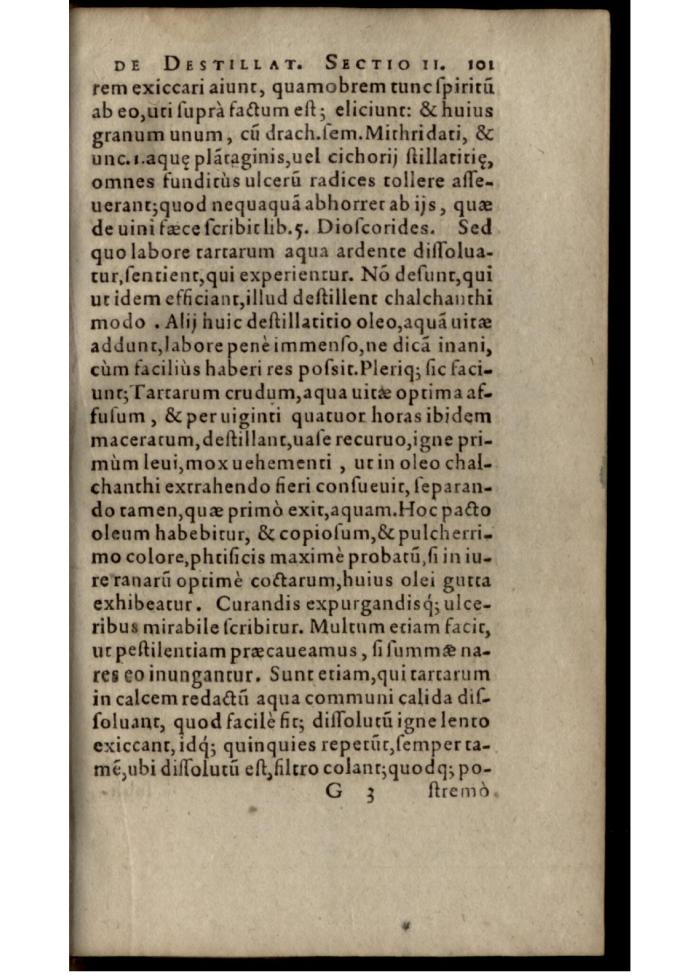 DE DESTILLAT. SECTIO II. 101
rem exiccari aiunt, quamobrem tunc ſpiritū
ab eo,uti ſuprà factum eſt; eliciunt: & huius
granum unum, cū drach.ſem.Mithridati, &
unc.1.aquę plātaginis,uel cichorij ſtillatitię,
omnes funditùs ulcerū radices tollere aſſe-
uerant;quod nequaquā abhorret ab ijs, quæ
de uini fæce ſcribit lib.5. Dioſcorides. Sed
quo labore tartarum aqua ardente diſſolua-
tur,ſentient,qui experientur. Nō deſunt,qui
ut idem efficiant,illud deſtillent chalchanthi
modo . Alij huic deſtillatitio oleo,aquā uitæ
addunt,labore penè immenſo,ne dicā inani,
cùm faciliùs haberi res poſsit.Pleriq; ſic faci-
unt;Tartarum crudum,aqua uitæ optima af-
fuſum, & per uiginti quatuor horas ibidem
maceratum,deſtillant,uaſe recuruo,igne pri-
mùm leui,mox uehementi , ut in oleo chal-
chanthi extrahendo fieri conſueuit, ſeparan-
do tamen,quæ primò exit,aquam.Hoc pacto
oleum habebitur, & copioſum,& pulcherri-
mo colore,phtiſicis maximè probatū,ſi in iu-
re ranarū optimè coctarum,huius olei gutta
exhibeatur. Curandis expurgandisq́; ulce-
ribus mirabile ſcribitur. Multum etiam facit,
ut peſtilentiam præcaueamus, ſi ſummæ na-
res eo inungantur. Sunt etiam,qui tartarum
in calcem redactū aqua communi calida diſ-
ſoluant, quod facilè fit; diſſolutū igne lento
exiccant, idq́; quinquies repetūt,ſemper ta-
mē,ubi diſſolutū eſt,filtro colant;quodq; po-
G 3 ſtremò